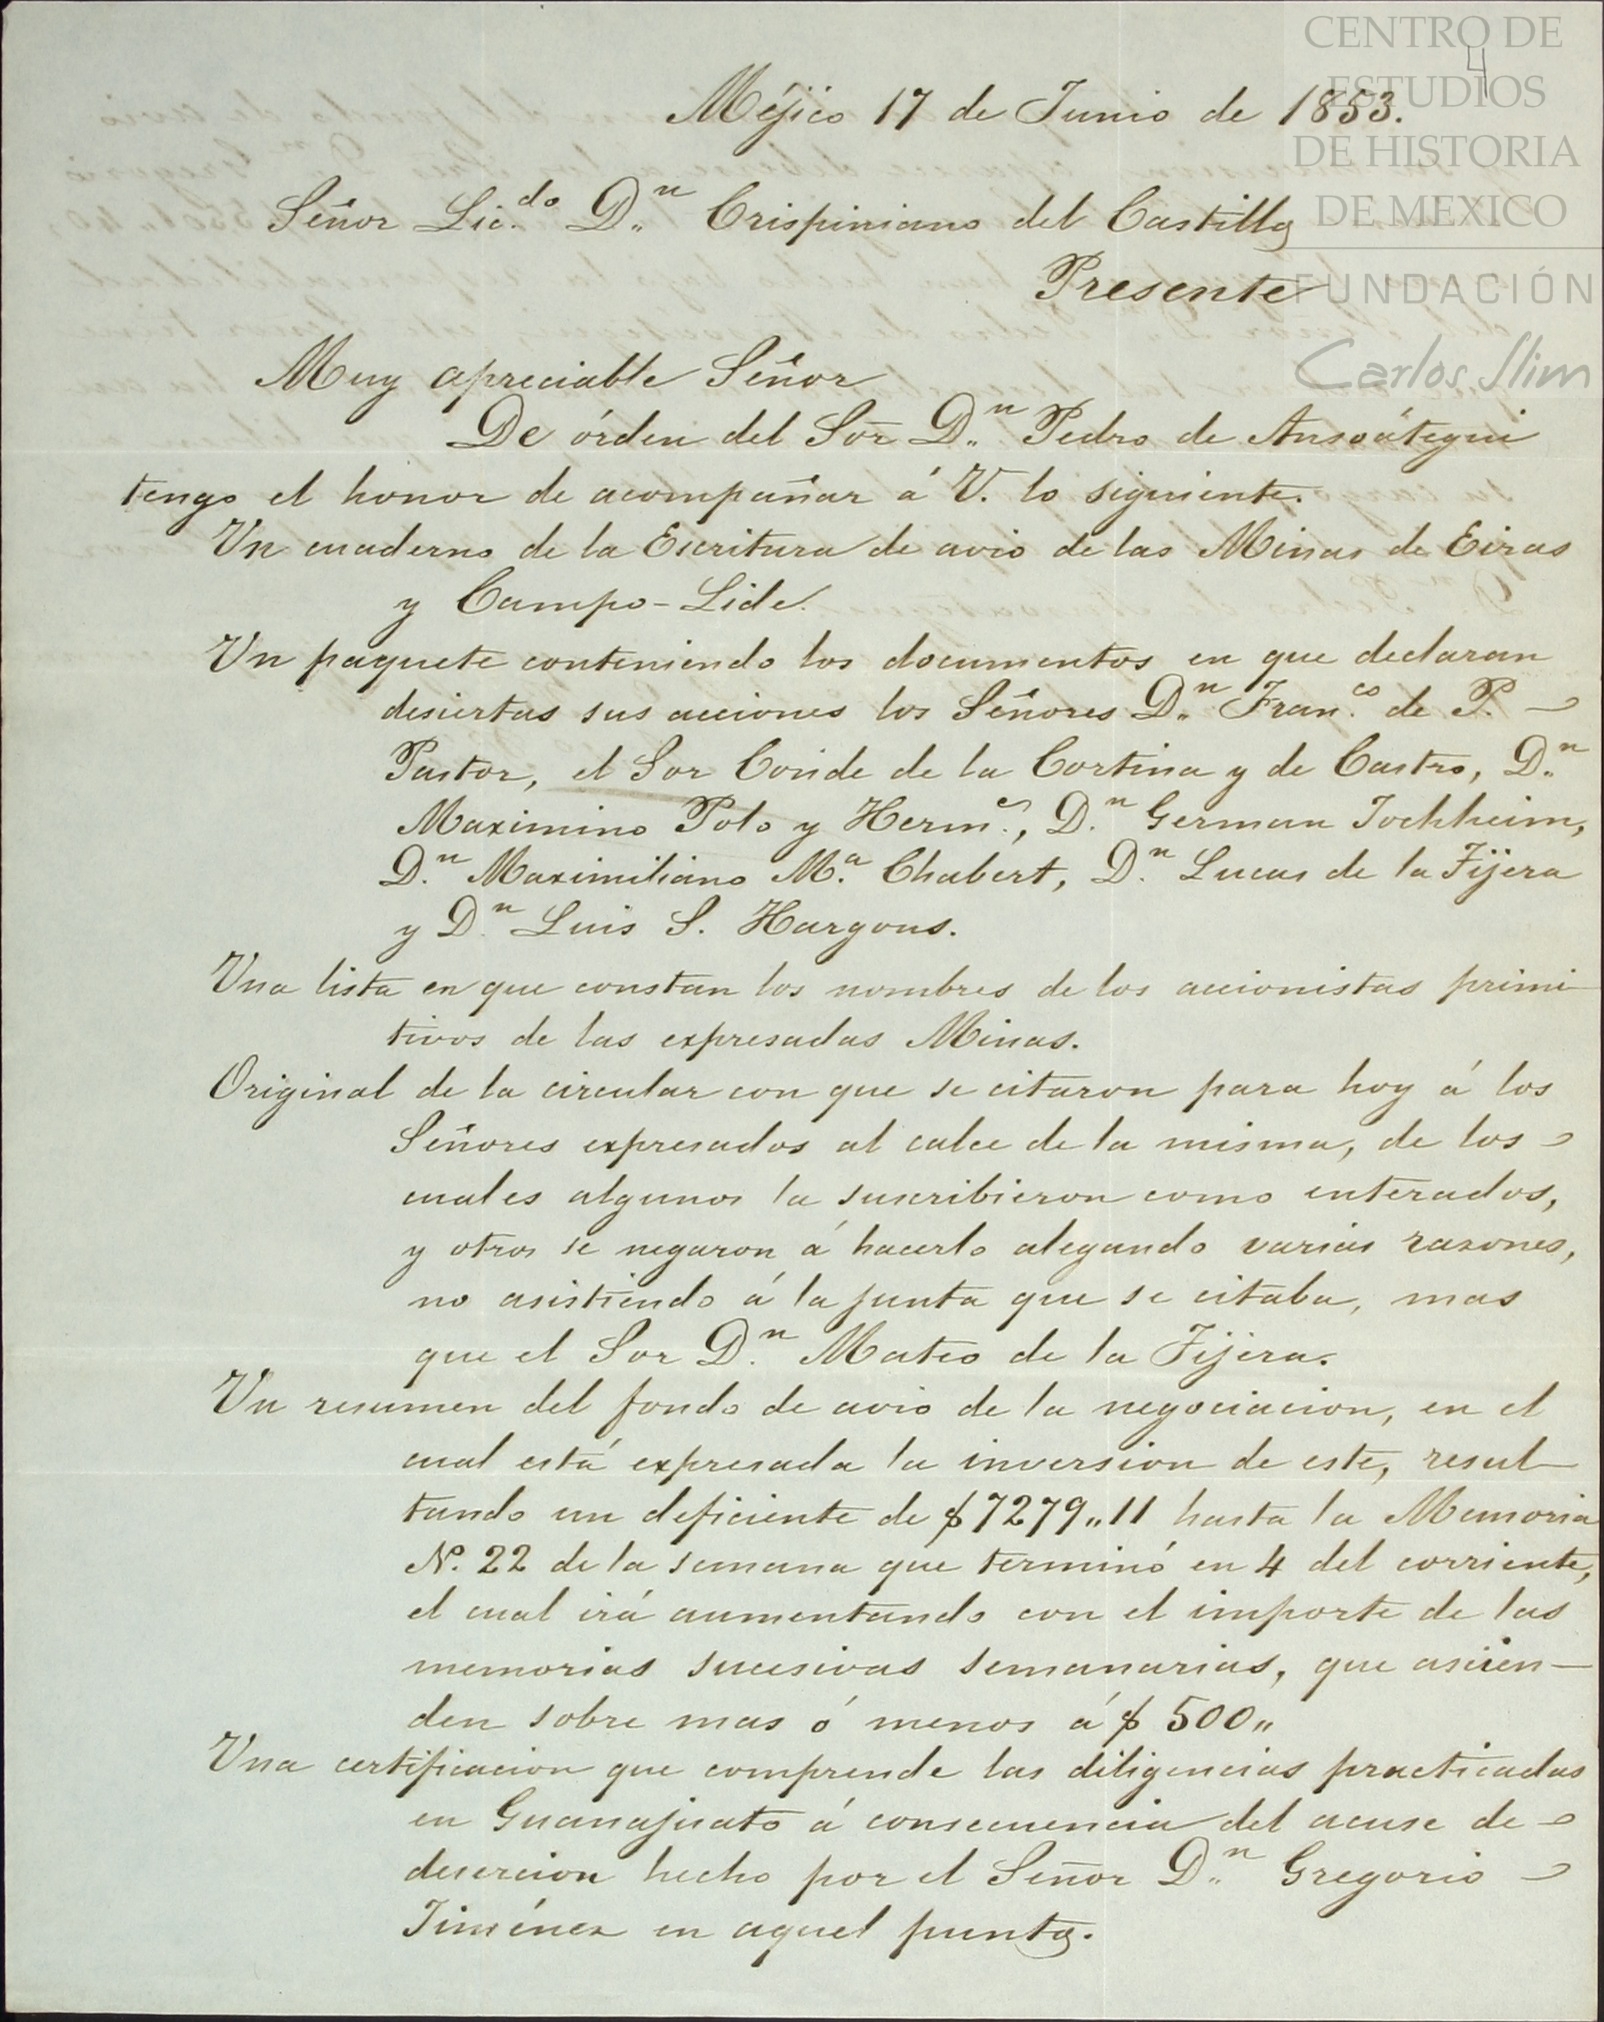 CENTRO DE
ESTUDIOS
DE HISTORIA
DE MEXICO
FUNDACIÓN
Carlos Slim
4
Méjico 17 de Junio de 1853.
Señor Lic.do D.n Crispiniano del Castillo
Presente
Muy apreciable Señor
De órden del Sor D.n Pedro de Ansoátegui
tengo el honor de acompañar á V. lo siguiente.
Un cuaderno de la Escritura de avio de las Minas de Eiras
y Campo-Lide.
Un paquete conteniendo los documentos en que declaran
desiertas sus acciones los Señores D.n Fran.co de P.
Pastor, el Sor Conde de la Cortina y de Castro, D.n
Maximino Polo y Herm.s, D.n German Jockheim,
D.n Maximiliano M.a Chabert, D.n Lucas de la Tijera
y D.n Luis S. Hargous.
Una lista en que constan los nombres de los accionistas primi
tivos de las expresadas Minas.
Original de la circular con que se citaron para hoy á los
Señores expresados al calce de la misma, de los
cuales algunos la suscribieron como enterados,
y otros se negaron á hacerlo alegando varias razones,
no asistiendo á la junta que se citaba, mas
que el Sor D.n Mateo de la Tijera.
Un resumen del fondo de avio de la negociacion, en el
cual está expresada la inversion de este, resul
tando un deficiente de $7279,,11 hasta la Memoria
N. 22 de la semana que terminó en 4 del corriente,
el cual irá aumentando con el importe de las
memorias sucesivas semanarias, que ascien-
den sobre mas ó menos á $ 500,,
Una certificacion que comprende las diligencias practicadas
en Guanajuato á consecuencia del acuse de
desercion hecho por el Señor D.n Gregorio
Jiménez en aquel punto.